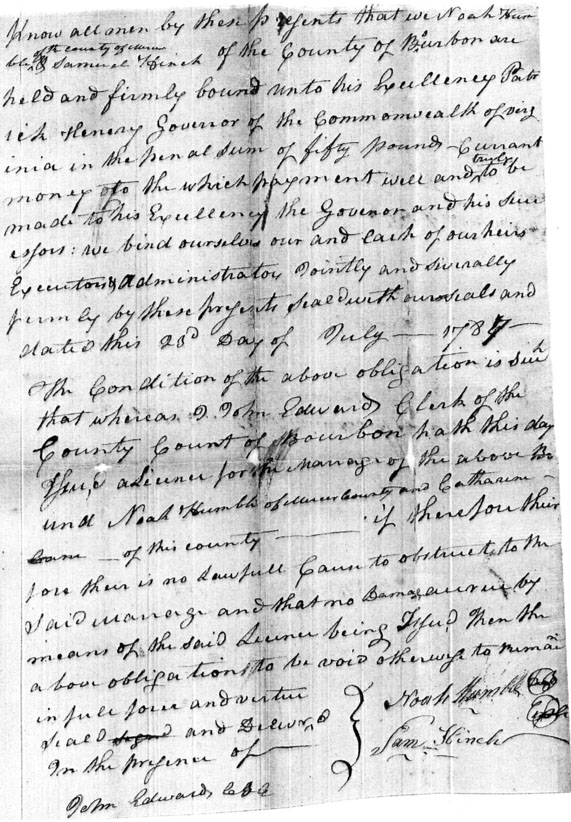 Know all men by these presents that we Noah Hum
of the county of
ble & Samuel Hinch of the County of Burbon are
held and firmly bound unto his Excellency Patr
ick Henery Govenor of the Commonwealth of virg
inia in the penal sum of fifty pounds Currant
truly
money of to the which payment well and to be
made to his Excellency the Govenor and his succ
essors: we bind ourselves our and Each of our heirs
Executors & administrators Jointly and siverally
firmly by these presents seald with our seals and
dated this 23d Day of July 1787
The Condition of the above obligation is Such
that whereas John Edwards Clerk of the
County Count of Bourbon hath this day
Issu,d a Licence for the Marrage of the above Bo
und Noah Humble of County and Catharine
of this county if therefore their
fore their is no Lawfull Cause to obstruct, to the
said marrage and that no Damage accrue by
means of the said Licence being Issu,d then the
above obligation to be void otherwise to remain
in full force and virtue
Seald and Deliver,d
In the presence of
Noah Humble
Sam Hinch
John Edwards